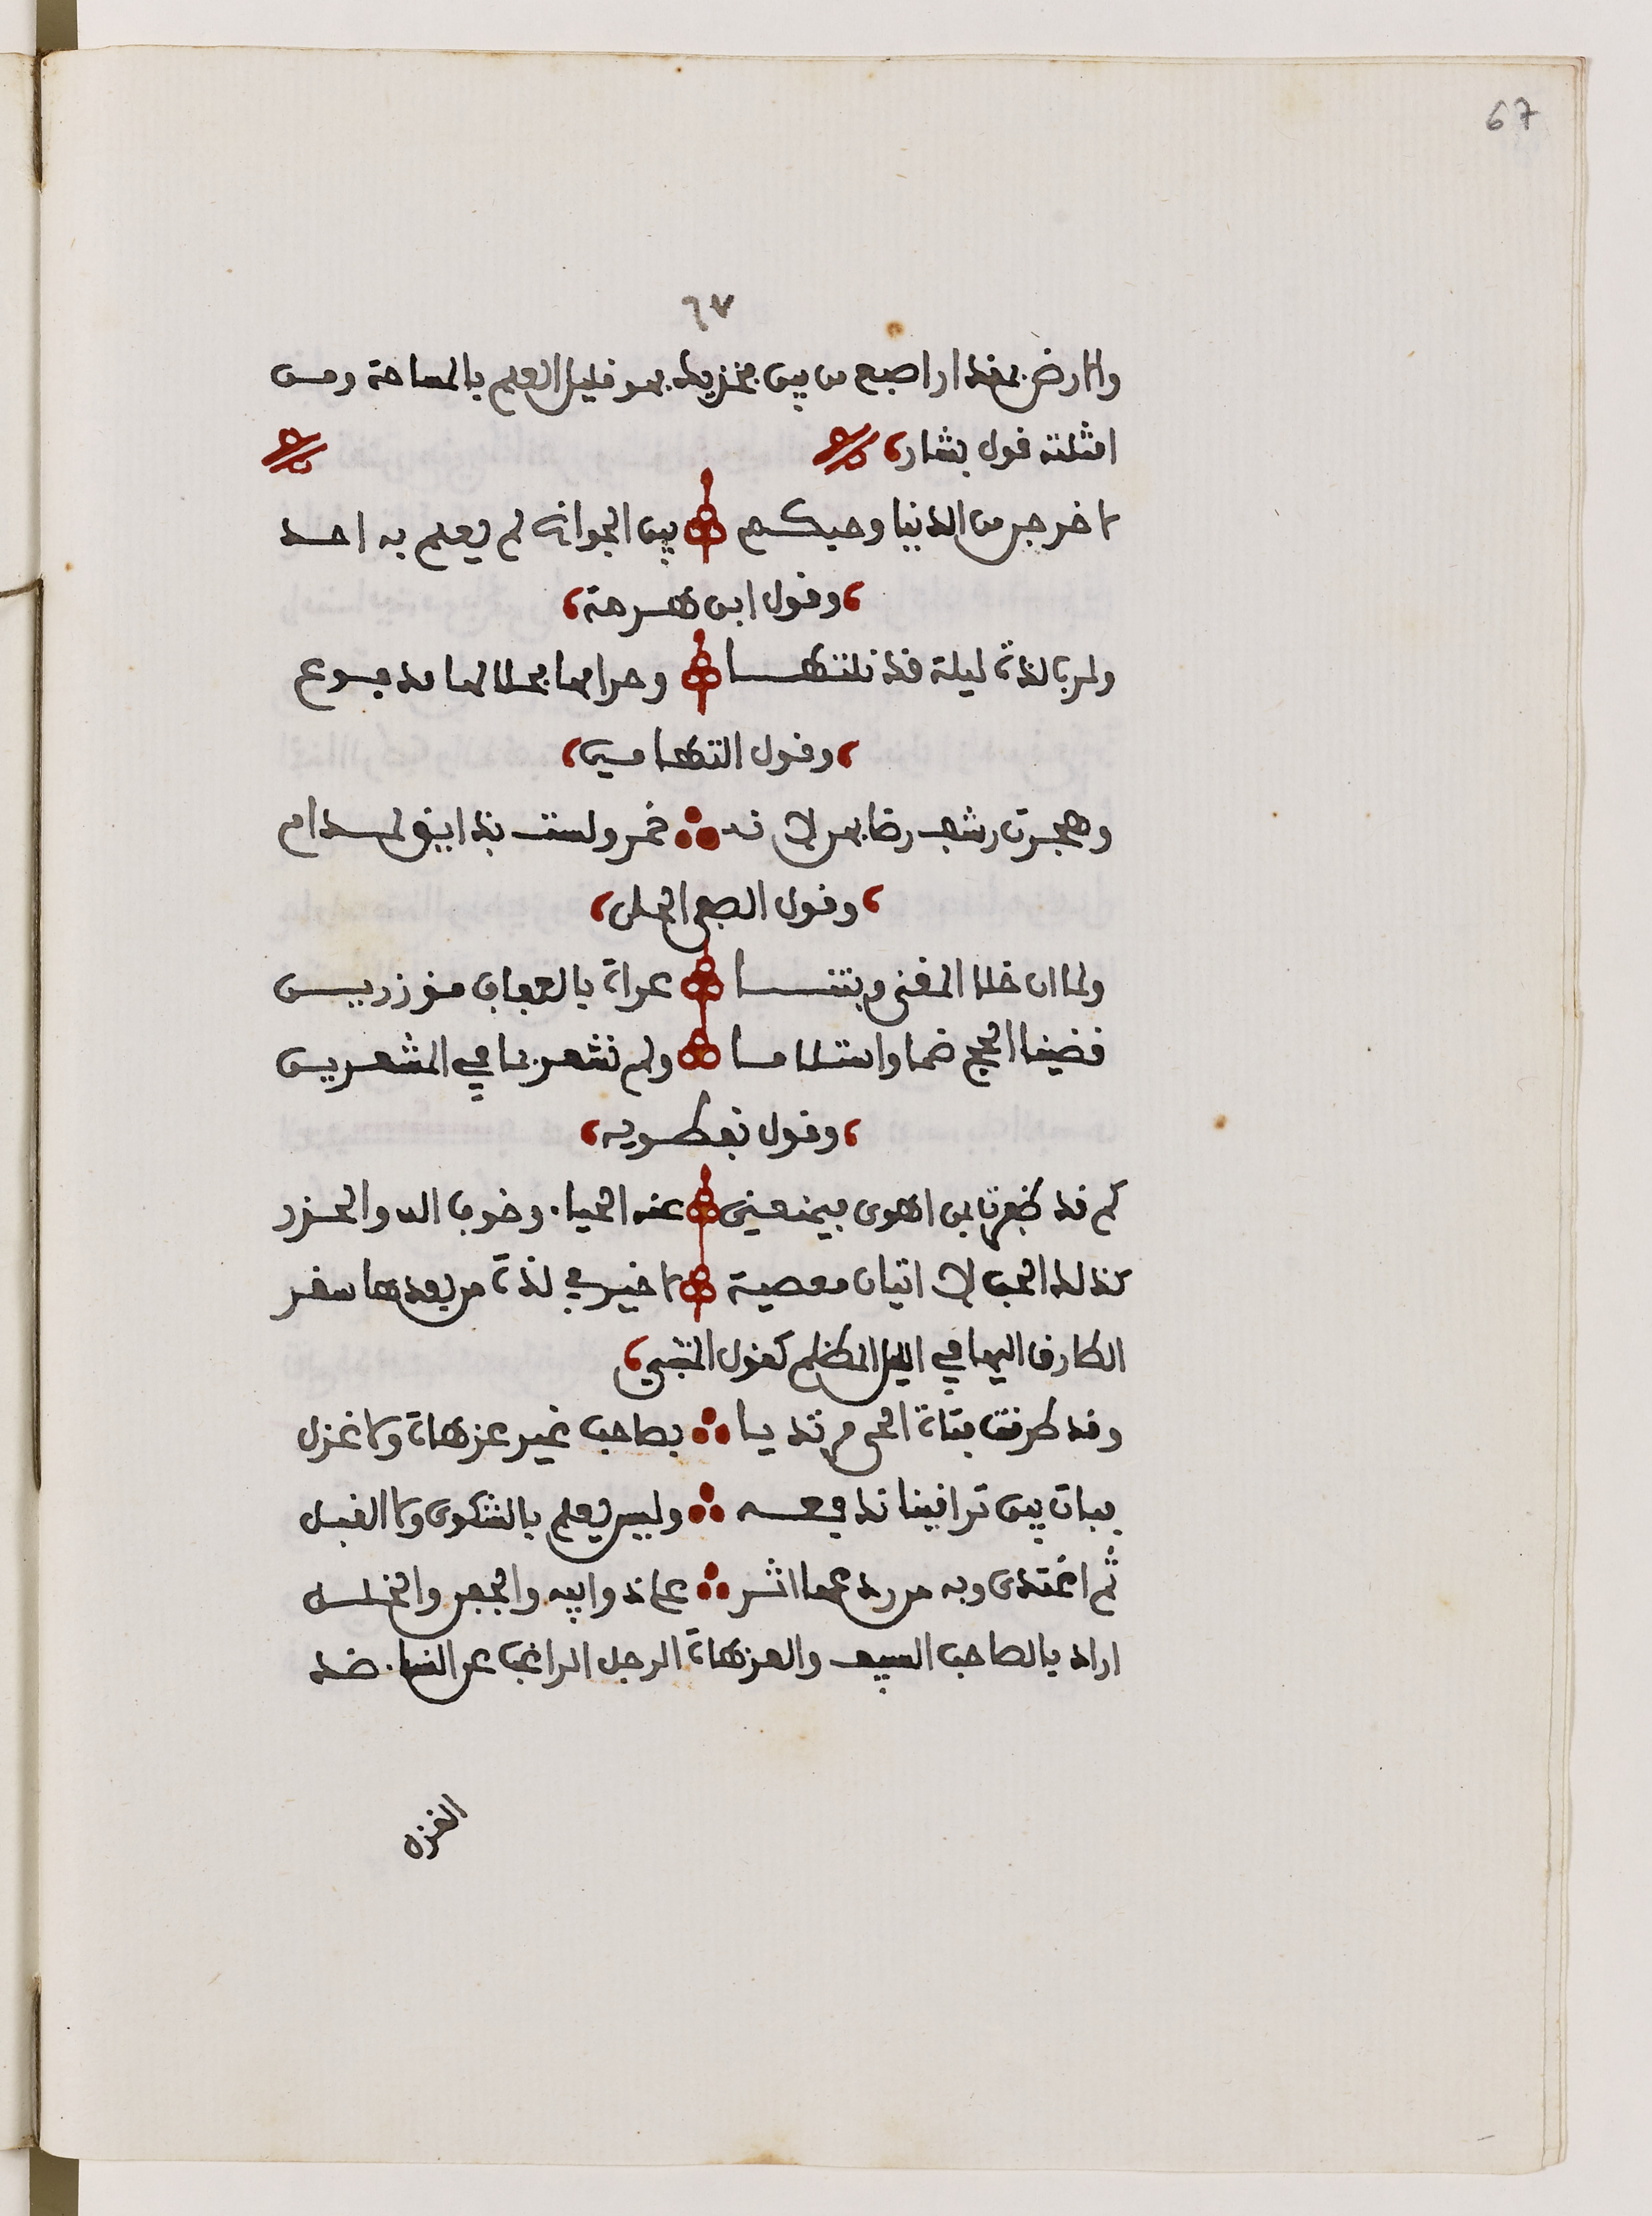 67
٦٧
والارض بمقدار اصبع من بين فخذيك فهو قليل العلم بالمساحة ومن
امثلته قول بشار
لا خرجن من الدنيا وحبكم بين الجوانح لم يعلم به احد
وقول ابن هرمة
ولرب لذة ليلة قد نلتها وحرامها بحلالها مدفوع
وقول التهامي
وهجرت رشف رضابهن لانه خمر ولست بذايق لمدام
وقول الصفي الحلي
ولما ان خلا المغنى وبتنا عراة بالعفاف موزرين
قضينا الحج ضما واستلاما ولم نشعر بما في المشعرين
وقول نفطويه
كم قد ظفرت بمن اهوى فيمنعني عنه الحياء وخوف الله والحذر
كذلك الحب لا اتيان معصية لا خير في لذة من بعدها سقر
الطارق اليها في اليل المظلم كقول المتنبي
وقد طرقت فتاة الحي مرتديا بصاحب غير عزهاة ولا غزل
فبات بين تراقينا ندفعه وليس يعلم بالشكوى ولا القبل
ثم اغتدى وبه من ردعها اثر على ذوابيه والجفن والخلل
اراد بالصاحب السيف والعزهاة الرجل الراغب عن النساء ضد